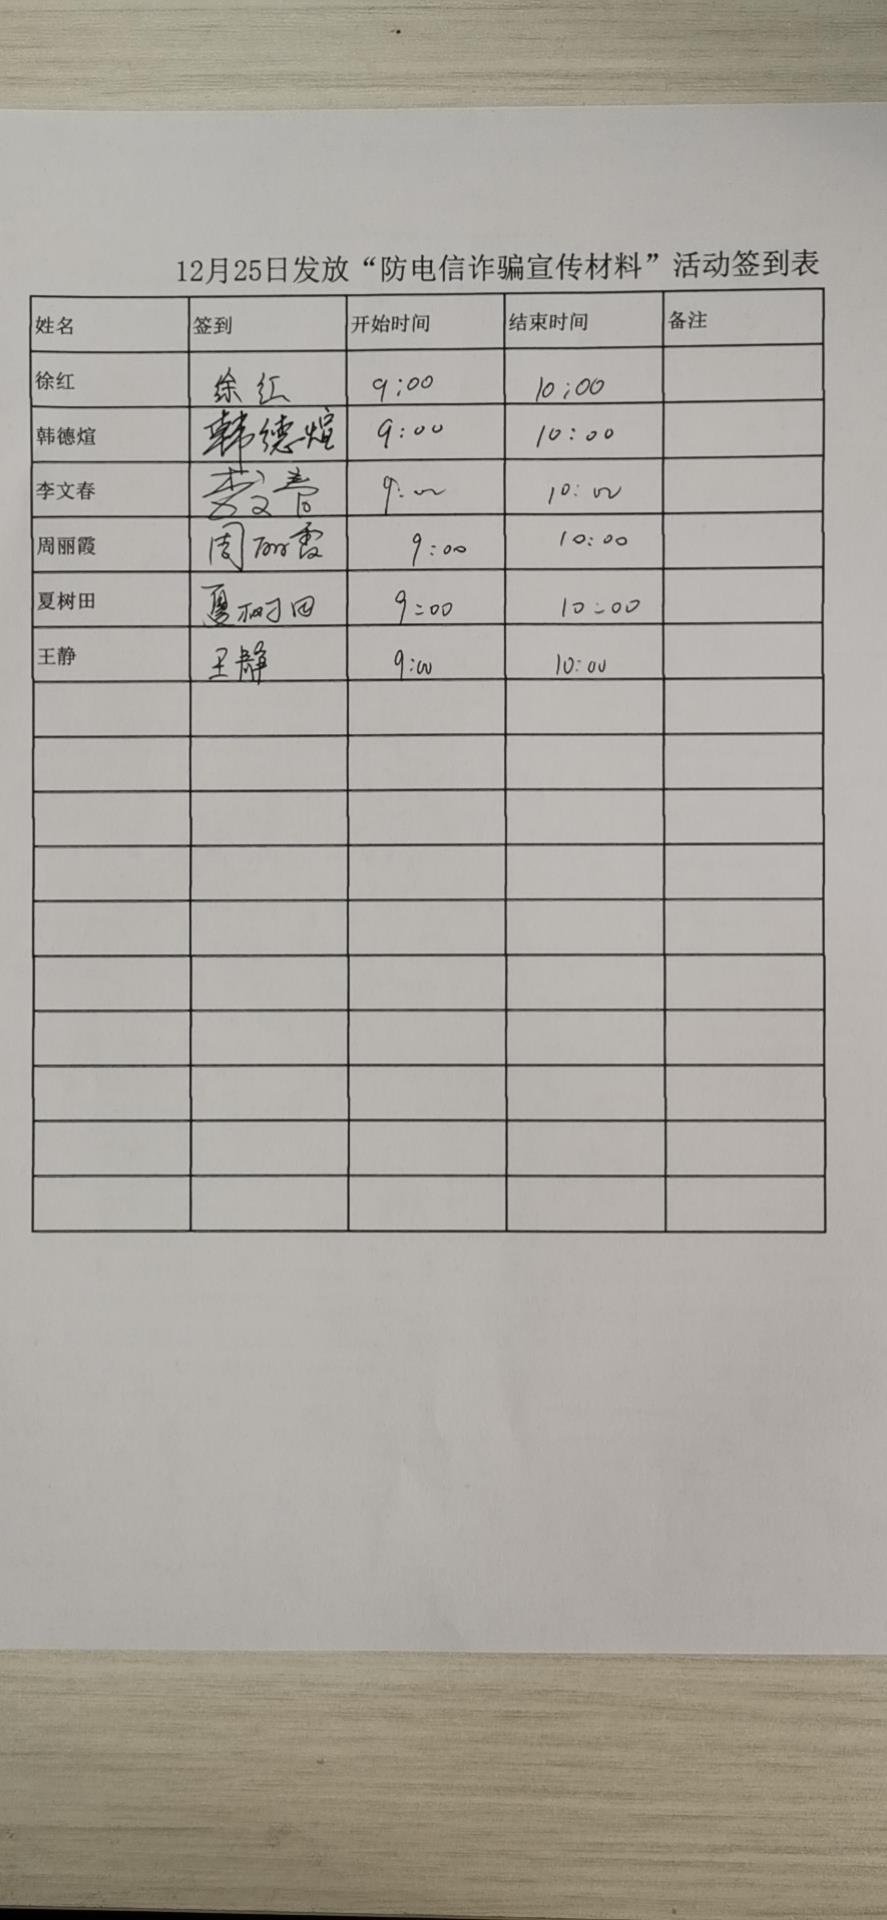 12月25日发放“防电信诈骗宣传材料”活动签到表
姓名 签到 开始时间 结束时间 备注
徐红 徐红 9:00 10:00
韩德煊 韩德煊 9:00 10:00
李文春 李文春 9:00 10:00
周丽霞 周丽霞 9:00 10:00
夏树田 夏树田 9:00 10:00
王静 王静 9:00 10:00